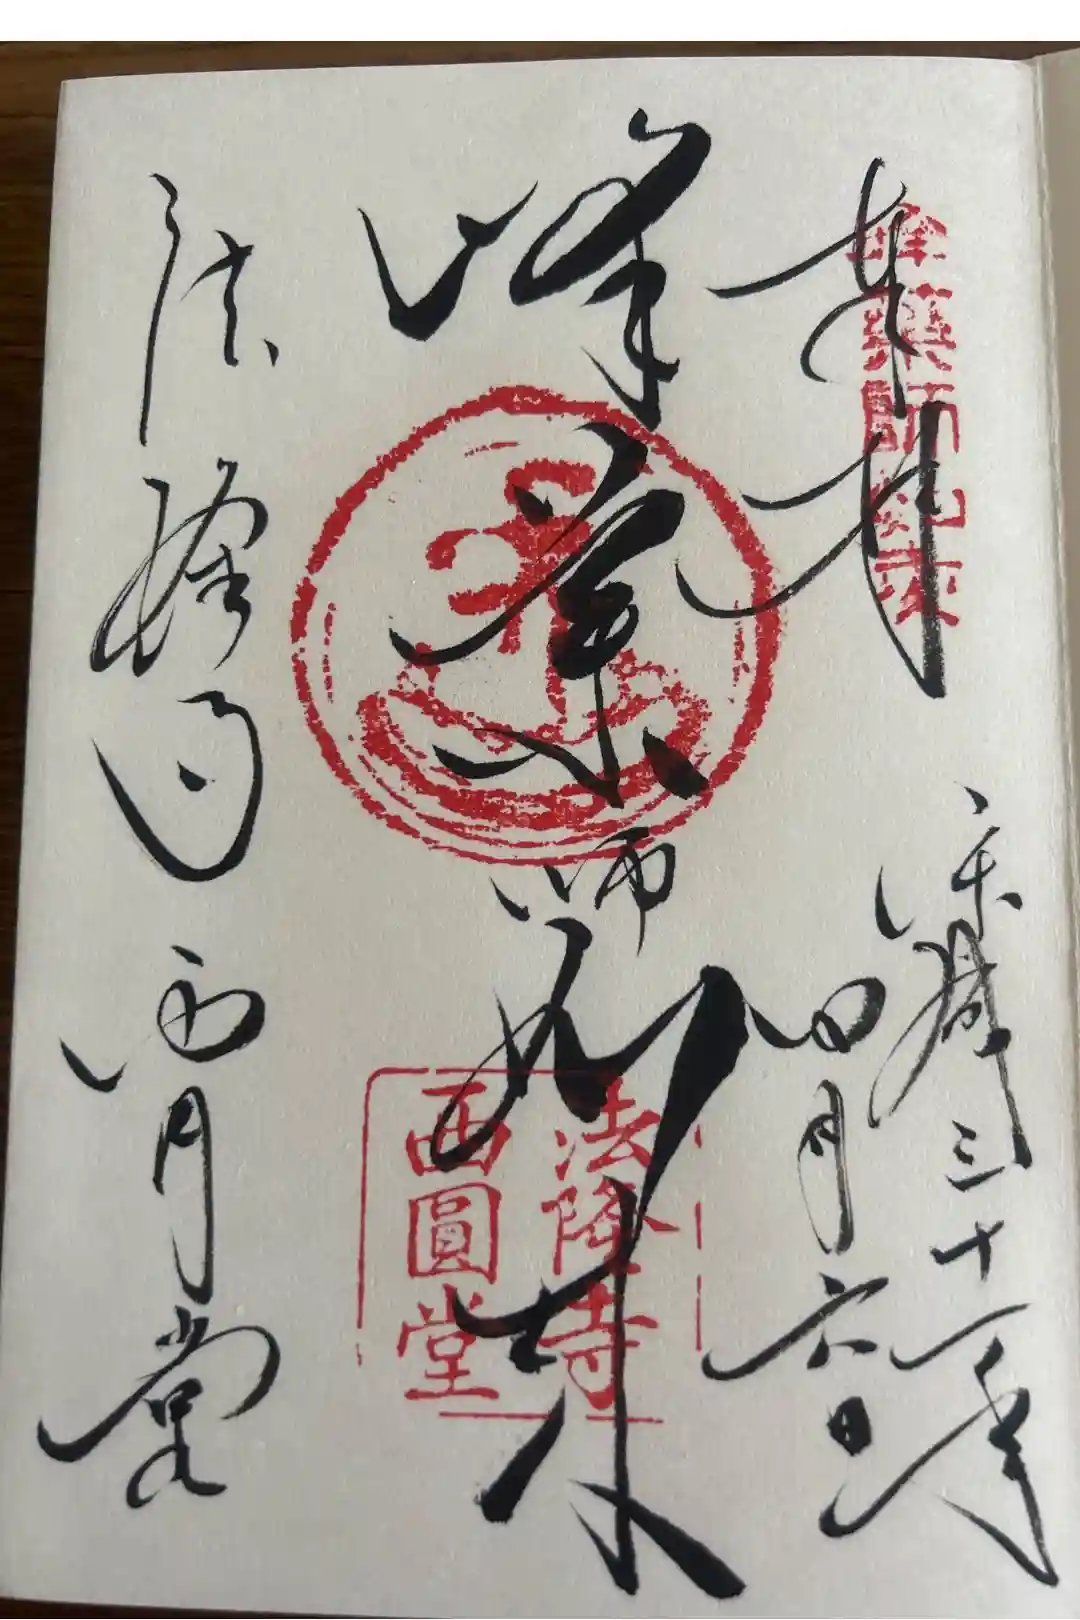 奉拝
峯藥師如來
平成三十一年
四月六日
峰薬師如来
法隆寺
西圓堂
法隆寺西円堂